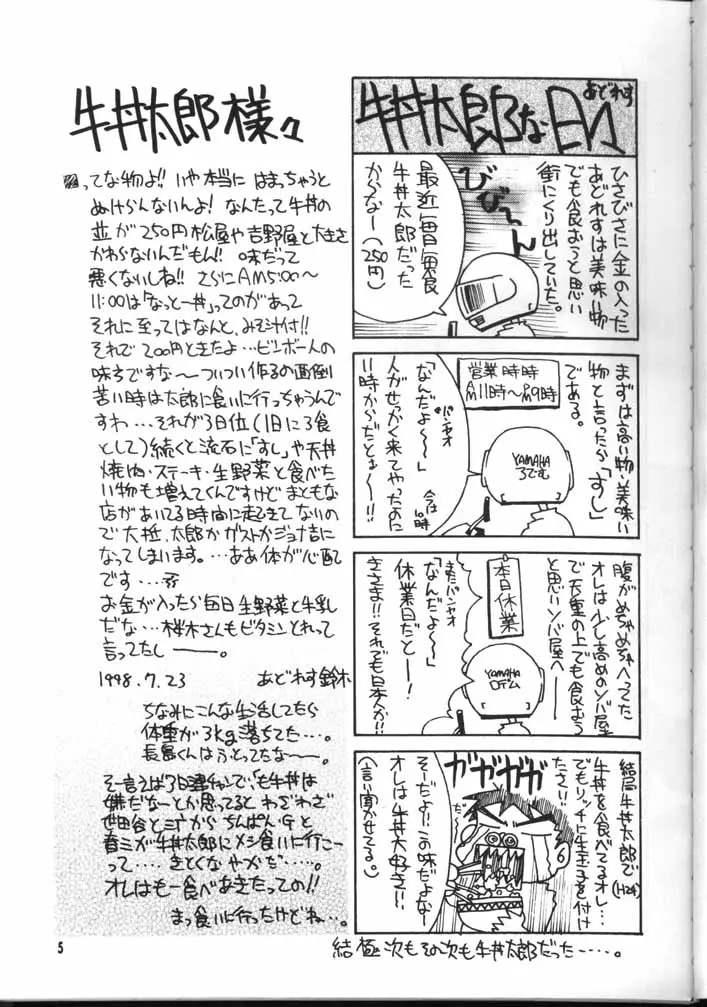 牛丼太郎な日々
あどれす
ひさびさに金の入った
あどれすは美味い物
でも食おうと思い
街にくり出していた。
びびーーん
最近毎日毎食
牛丼太郎だった
からなー(250
円)
まずは高い物・美味い
物と言ったら「すし」
である。
営業時時
AM11時〜PM9時
YAMAHA
ろでむ
バンッオ
「なんだよ〜〜」
人がせっかく来てやったのに
11時からだとぉ〜!!
今は
10時
腹がめちゃめちゃへってた
オレは少し高めのソバ屋
で天重の上でも食おう
と思いソバ屋へ――
本日休業
YAMAHA
ロデム
またバンッオ
「なんだよ〜〜」
休業日だと―!
きさま!!それでも日本人か!!
結局牛丼太郎で
(H24)
牛丼を食べてるオレ…
でもリッチに生玉子を付け
たさ!!
ガガガガ
そーだよ!!この味だよな―
オレは牛丼大好き!!
(言い聞かせてる。)
結極次もその次も牛丼太郎だった……。
牛丼太郎様々
ってな物よ!!いや本当にはまっちゃうと
ぬけらんないんよ!なんたって牛丼の
並が250円松屋や吉野屋と大きさ
かわらないんだもん!!味だって
悪くないしね!!さらにAM5:00〜
11:00は「なっとー丼」ってのがあって
それに至ってはなんと、みそ汁付!!
それで200円ときたよ…ビンボー人の
味方ですな〜ついつい作るの面倒
苦い時は太郎に食いに行っちゃうんで
すわ…それが3日位(1日に3食
として)続くと流石に「すし」や天丼
焼肉・ステーキ・生野菜と食べた
い物も増えてくんですけどまともな
店があいてる時間に起きてないの
で大抵、太郎かガストかジョナ吉に
なってしまいます。…ああ体が心配
です…
お金が入ったら毎日生野菜と牛乳
だな…桜木さんもビタミンとれって
言ってたし――。
1998.7.23 あどれす鈴木
ちなみにこんな生活してたら
体重が3kg落ちてた…。
長島くんはふとってたな〜〜。
そー言えば
嫌だなーとか思ってるとわざわざ
世田谷と
春ミが牛丼太郎にメシ食いに行こー
って……きとくなやからだ……。
オレはもー食べあきたっての!!
まっ食いに行ったけどね…。
5